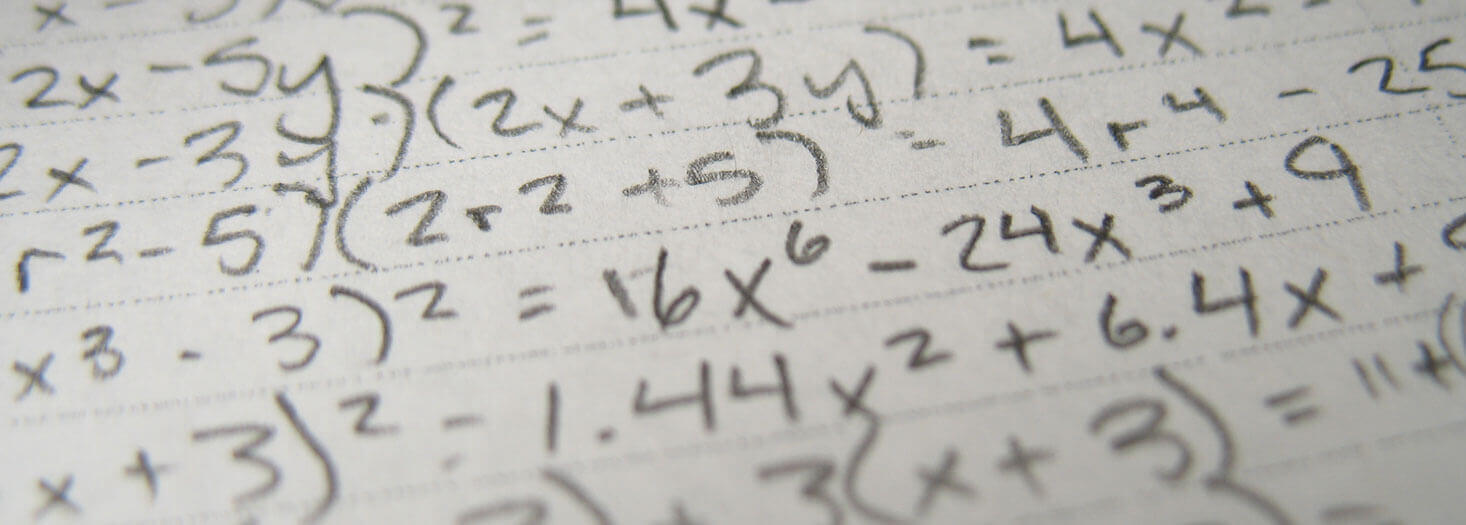 2x - 5y)² = 4x
2x - 3y)(2x + 3y) = 4x²
r² - 5)(2r² + 5) = 4r⁴ - 25
x³ - 3)² = 16x⁶ - 24x³ + 9
x + 3)² = 1.44x² + 6.4x +
) + 3(x + 3) = 11 + (